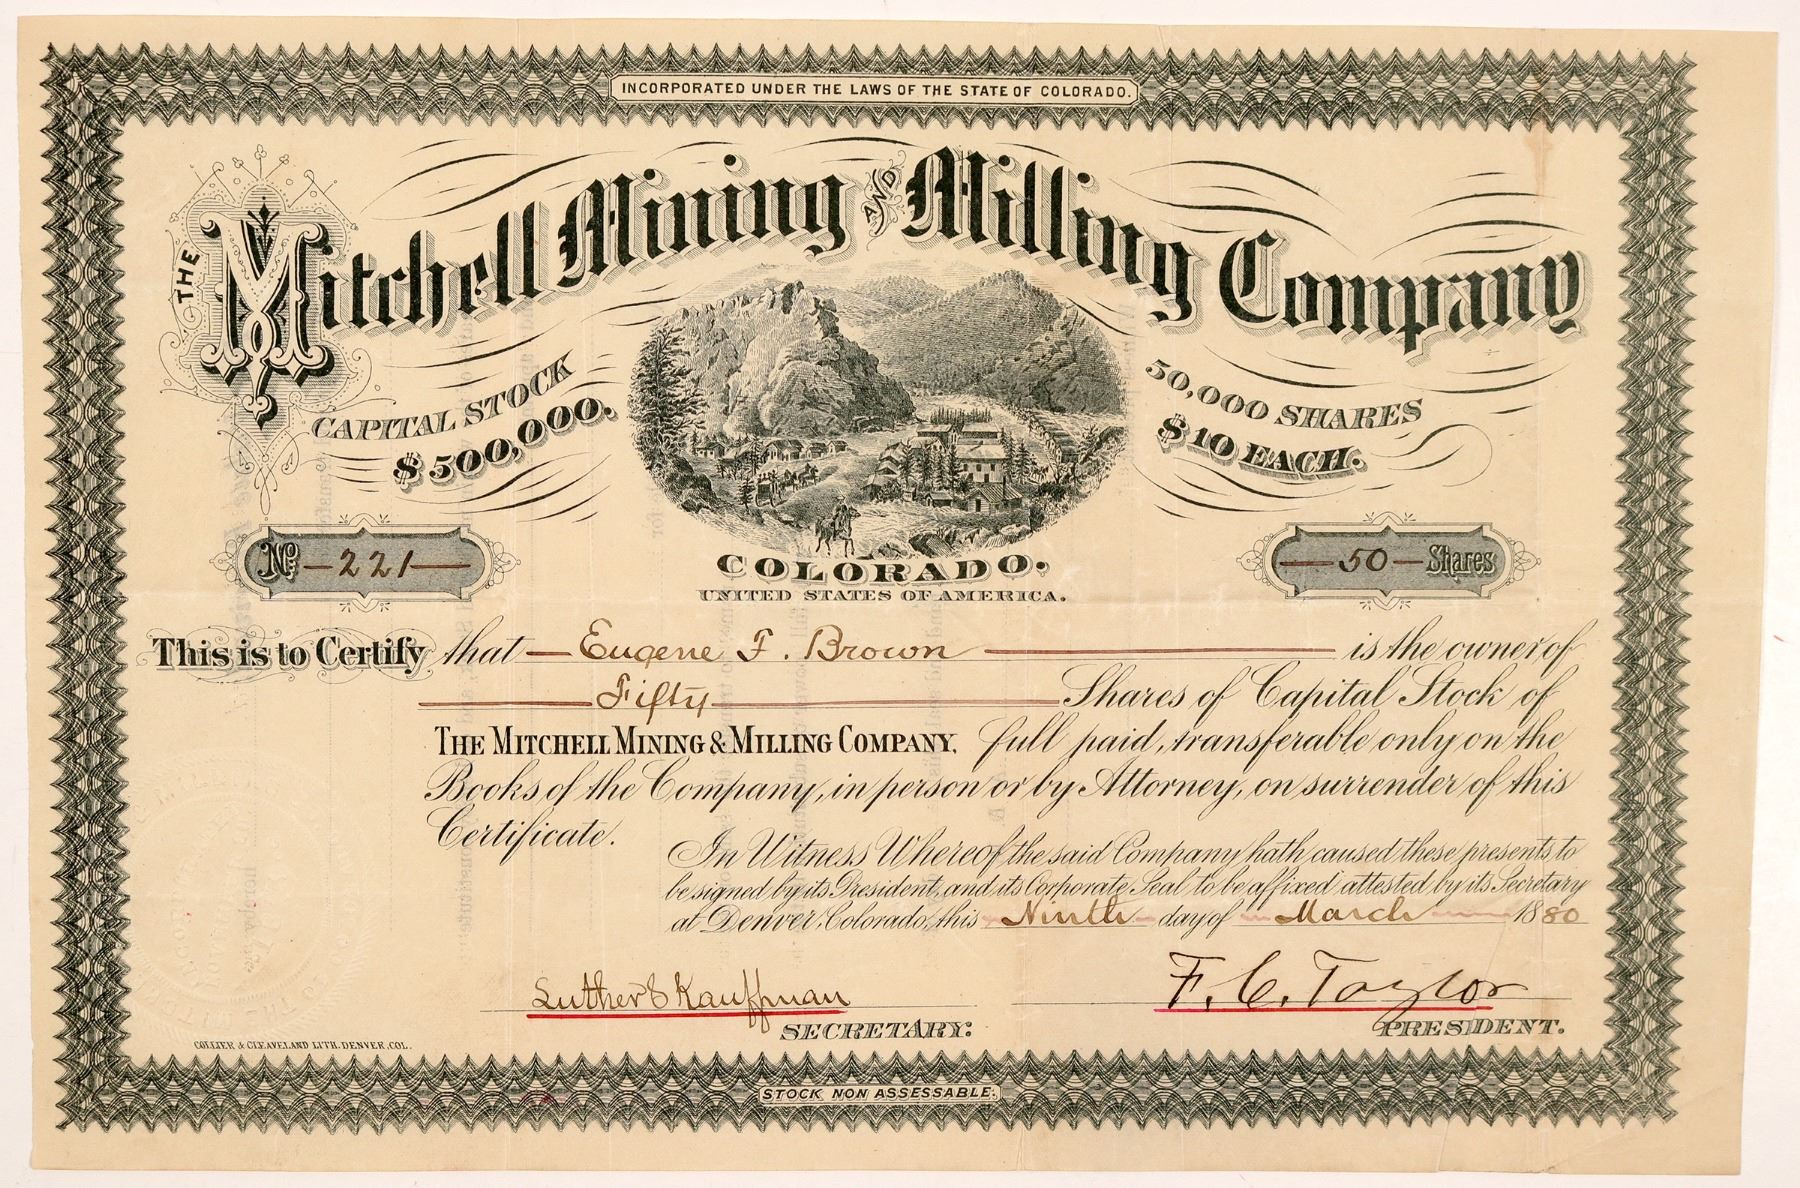 INCORPORATED UNDER THE LAWS OF THE STATE OF COLORADO.
THE Mitchell Mining AND Milling Company
CAPITAL STOCK
$500,000.
50,000 SHARES
$10 EACH.
COLORADO.
UNITED STATES OF AMERICA.
No. 221
50 Shares
This is to Certify that Eugene F. Brown is the owner of
Fifty Shares of Capital Stock of
THE MITCHELL MINING & MILLING COMPANY, full paid, transferable only on the
Books of the Company, in person or by Attorney, on surrender of this
Certificate.
In Witness Whereof the said Company hath caused these presents to
be signed by its President, and its Corporate Seal to be affixed attested by its Secretary
at Denver, Colorado, this Ninth day of March 1880
Luther S Kauffman
SECRETARY.
F. C. Taylor
PRESIDENT.
COLLIER & CLEAVELAND LITH. DENVER, COL.
STOCK NON ASSESSABLE.